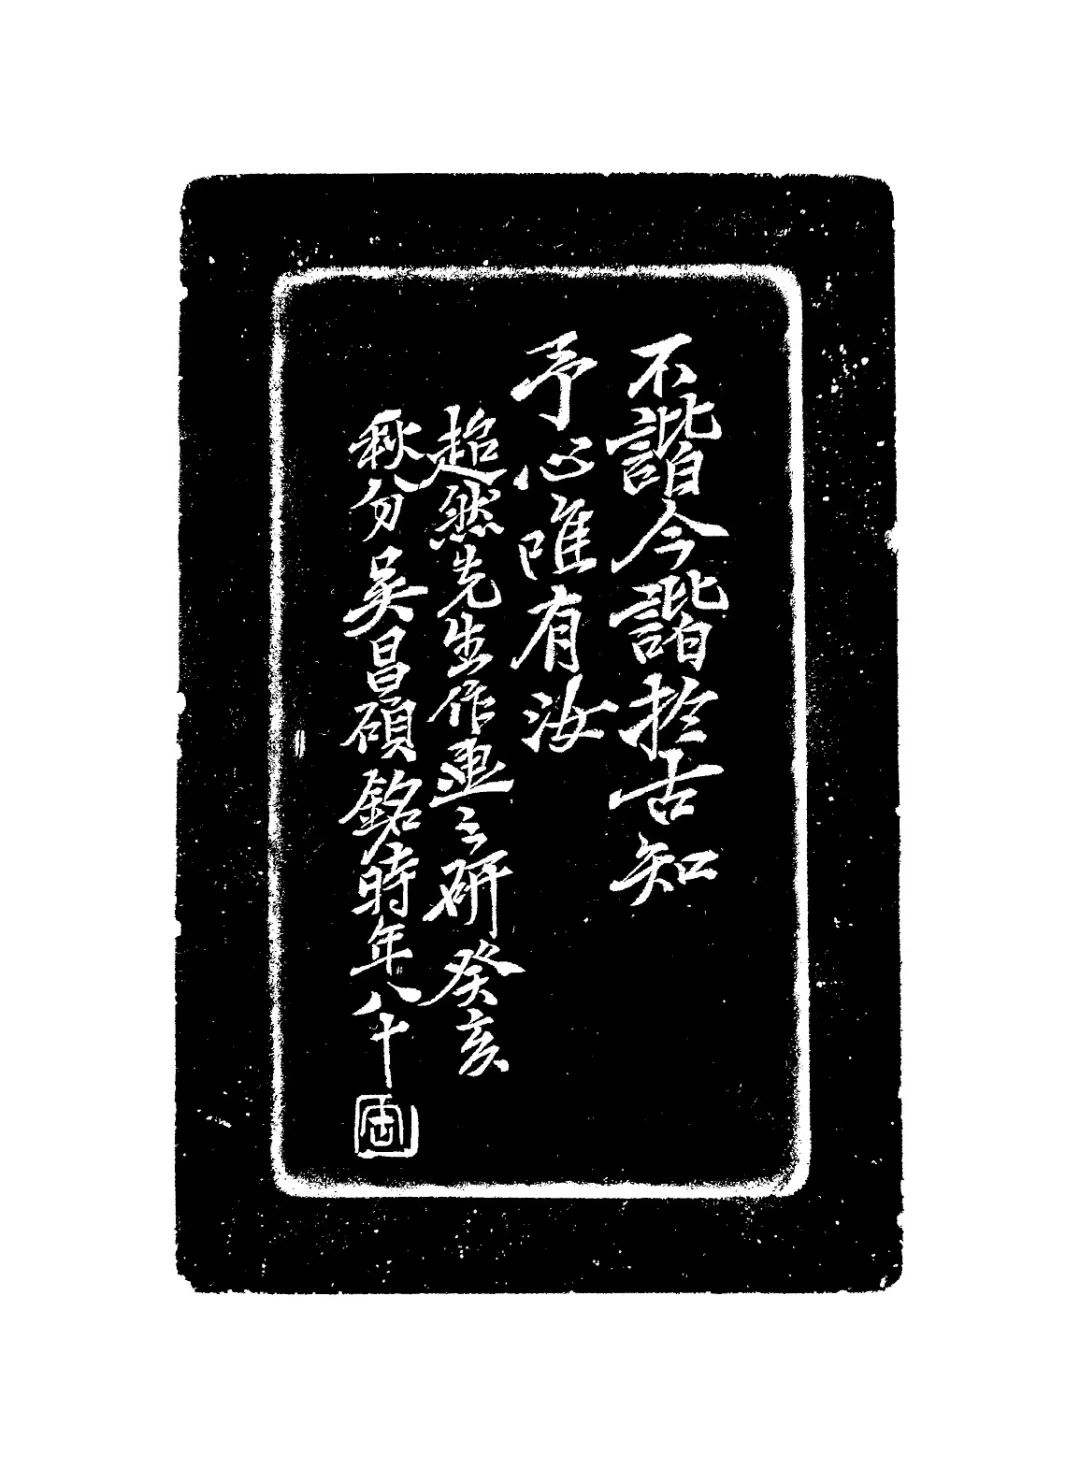 不諧今諧扵古知
予心唯有汝
超然先生作画之研癸亥
秋分吴昌碩銘時年八十